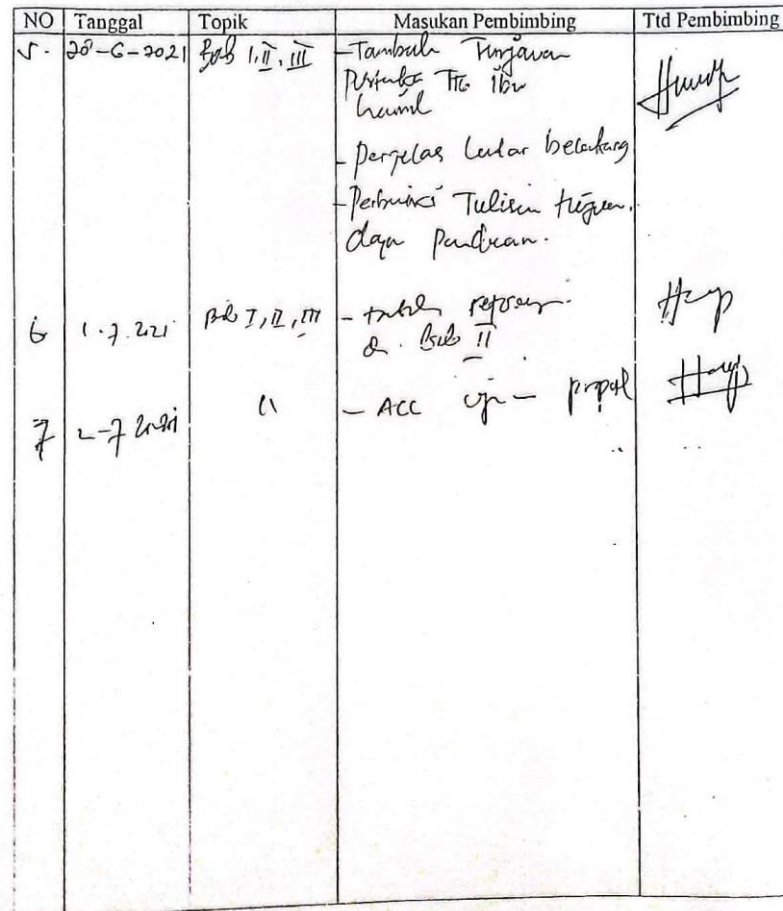 NO Tanggal Topik Masukan Pembimbing Ttd Pembimbing
5. 28-6-2021 Bab I, II, III - Tambah Tinjauan
Pustaka Ttg ibu
hamil
- Perjelas latar belakang
- Perbaiki Tulisan
dgn Panduan.
6 1.7.2021 Bab I, II, III -
Bab II
7 2-7 2021 " - ACC uji propal